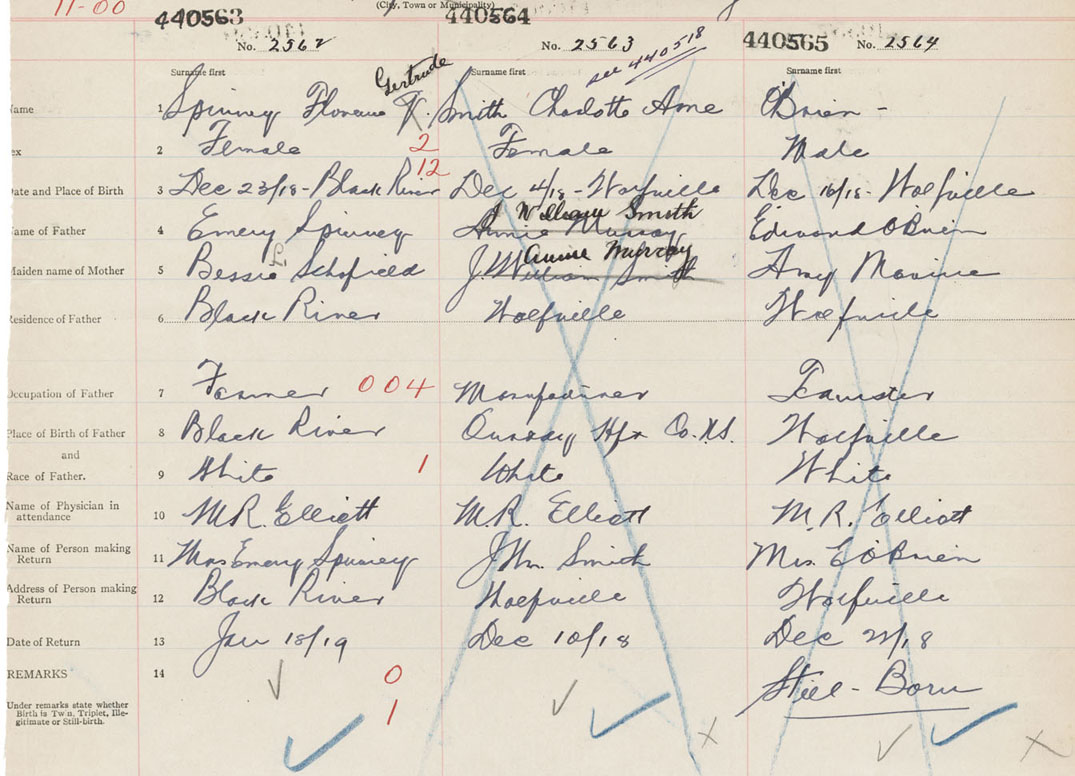 11-00 (City, Town or Municipality)
440563 440564 440565
No. 2562 No. 2563 see 440518 No. 2564
Surname first Gertrude Surname first Surname first
Name 1 Spinney Florence G. Smith Charlotte Anne O'Brien -
Sex 2 Female 2 Female Male
Date and Place of Birth 3 Dec 23/18 - Black River 12 Dec 4/18 - Wolfville Dec 16/18 - Wolfville
J. William Smith
Name of Father 4 Emery Spinney Annie Murray Edward O'Brien
Annie Murray
Maiden name of Mother 5 Bessie Schofield J. William Smith Amy
Residence of Father 6 Black River Wolfville Wolfville
Occupation of Father 7 Farmer 004 Teamster
Place of Birth of Father 8 Black River Hfx Co. N.S. Wolfville
and
Race of Father. 9 White 1 White White
Name of Physician in attendance 10 M.R. Elliott M.R. Elliott M.R. Elliott
Name of Person making Return 11 Mrs Emery Spinney J Wm. Smith Mrs. E O'Brien
Address of Person making Return 12 Black River Wolfville Wolfville
Date of Return 13 Jan 18/19 Dec 10/18 Dec 22/18
REMARKS 14 0 Still-Born
Under remarks state whether
Birth is Twn, Triplet, Ille-
gitimate or Still-birth. 1